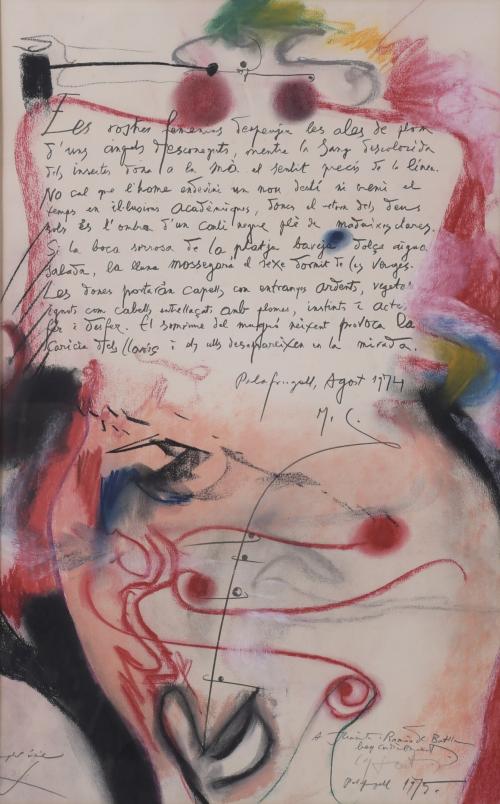 Les vostres femenins despenja les ales de plom
d'uns àngels desconeguts, mentre la sang descolorida
dels insectes dóna a la mà el sentit precís de la línea.
No cal que l'home endevini un nou destí ni meni el
temps en il·lusions acadèmiques, doncs el etern dels deus
sols és l'ombra d'un cantí negre plè de madeixes clares.
Si la boca sorrosa de la platja baveja dolça aigua
salada, la lluna mossegarà el sexe dormit de les verges.
Les dones portaràn capells con entranyes ardents, vegetals
ignots com cabells entrellaçats amb plomes, instints i actes
fer i desfer. El somriure del maniquí neixent provoca la
carícia dels llavis i els ulls desapareixen en la mirada.
Palafrugell, Agost 1974
M. C.
A i Ramón de Batlle
Palafrugell 1975.